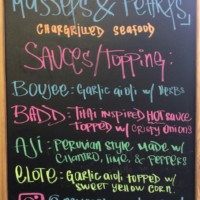 Mussels & Pearls
CHARGRILLED SEAFOOD
SAUCES/TOPPING:
BOUJEE: GARLIC AIOLI w/ HERBS
BADD: THAI INSPIRED HOT SAUCE
TOPPED w/ CRISPY ONIONS
AJI: PERUVIAN STYLE MADE w/
CILANTRO, LIME, & PEPPERS
ELOTE: GARLIC AIOLI TOPPED w/
SWEET YELLOW CORN.